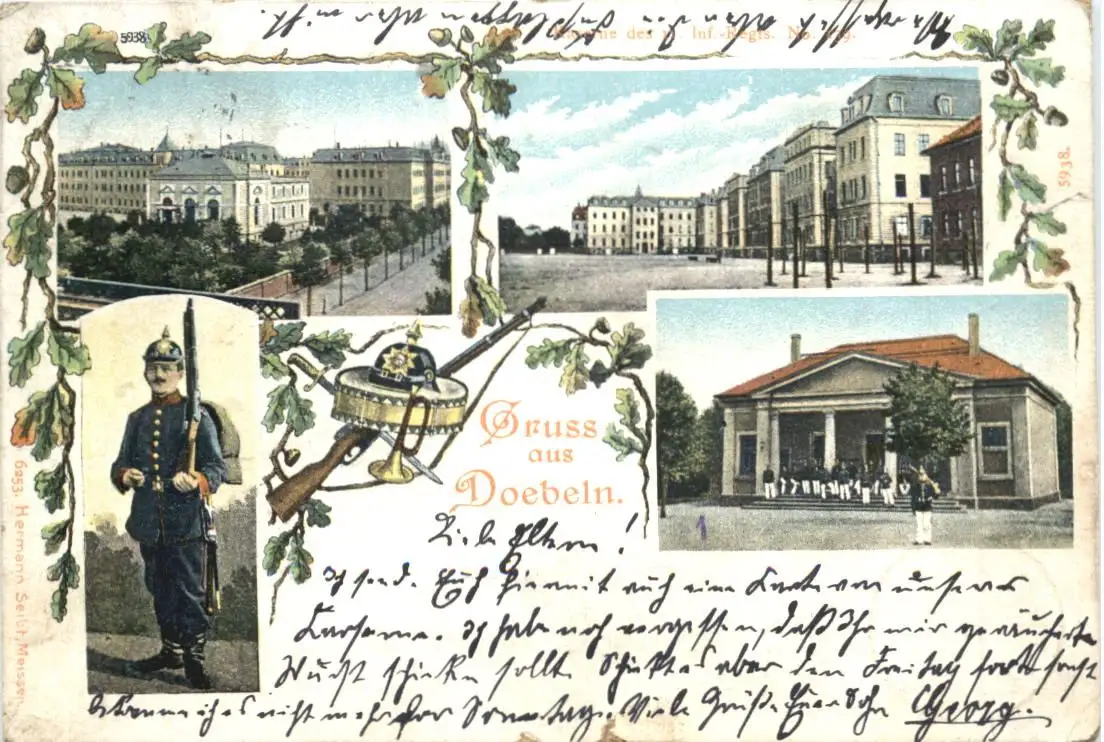 5938.
Kaserne des 11. Inf.-Regts. No. 139.
5938.
Gruss
aus
Doebeln.
1
6253. Hermann Seibt, Meissen
Liebe Eltern!
Ich sende Euch hiermit auch eine Karte von unserer
Kaserne. Ich habe noch vergessen, daß Ihr mir geräucherte
Wurst schicken sollt. Schickt es aber den Freitag fort sonst
bekomme ich es nicht mehr vor Sonntag. Viele Grüße Euer Sohn Georg.